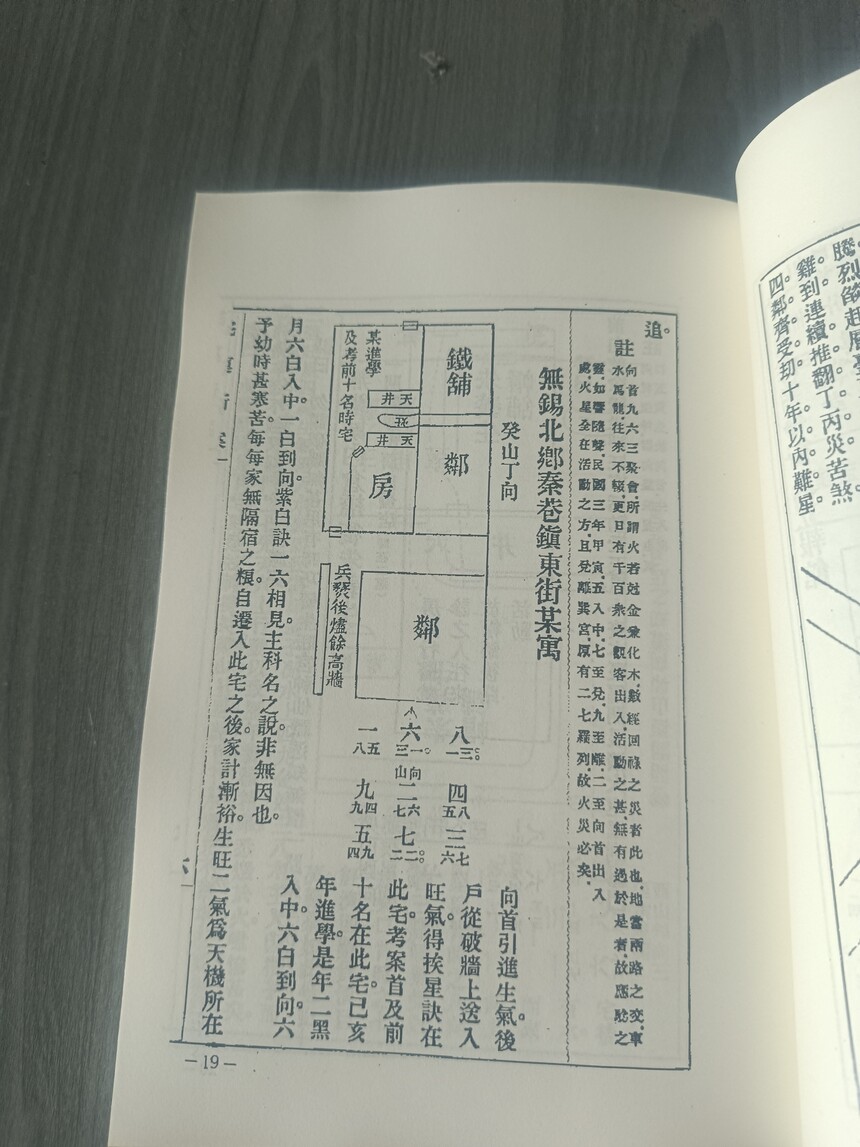 騰烈
雞到連續推翻丁丙災苦煞
四鄰齊受劫十年以內難星
追。
註
向首九六三聚會所謂火若尅金兼化木數經回祿之災者此也地當兩路之交車
水馬龍往來不輟更日有千百衆之觀客出入活動之甚無有過於是者故應驗之
靈如響隨聲民國三年甲寅五入中七至兌九至離二至向首出入
處火星全在活動之方且兌離巽宮原有二七羅列故火災必矣
無錫北鄉秦巷鎮東街某寓
癸山丁向
鐵舖
鄰
某進學
及考前十名時宅
天井
天井
房
鄰
兵燹後燼餘高牆
八
一三
四
五八
三
六七
六
三一
山向
二
七六
七
二二
一
八五
九
九四
五
四九
向首引進生氣。後
戶從破牆上逆入
旺氣。得挨星訣在
此宅。考案首及前
十名在此宅。己亥
年進學。是年二黑
入中。六白到向。六
月六白入中。一白到向。紫白訣一六相見。主科名之說。非無因也。
予幼時甚寒苦。每每家無隔宿之糧。自遷入此宅之後。家計漸裕。生旺二氣爲天機所在
六
—19—